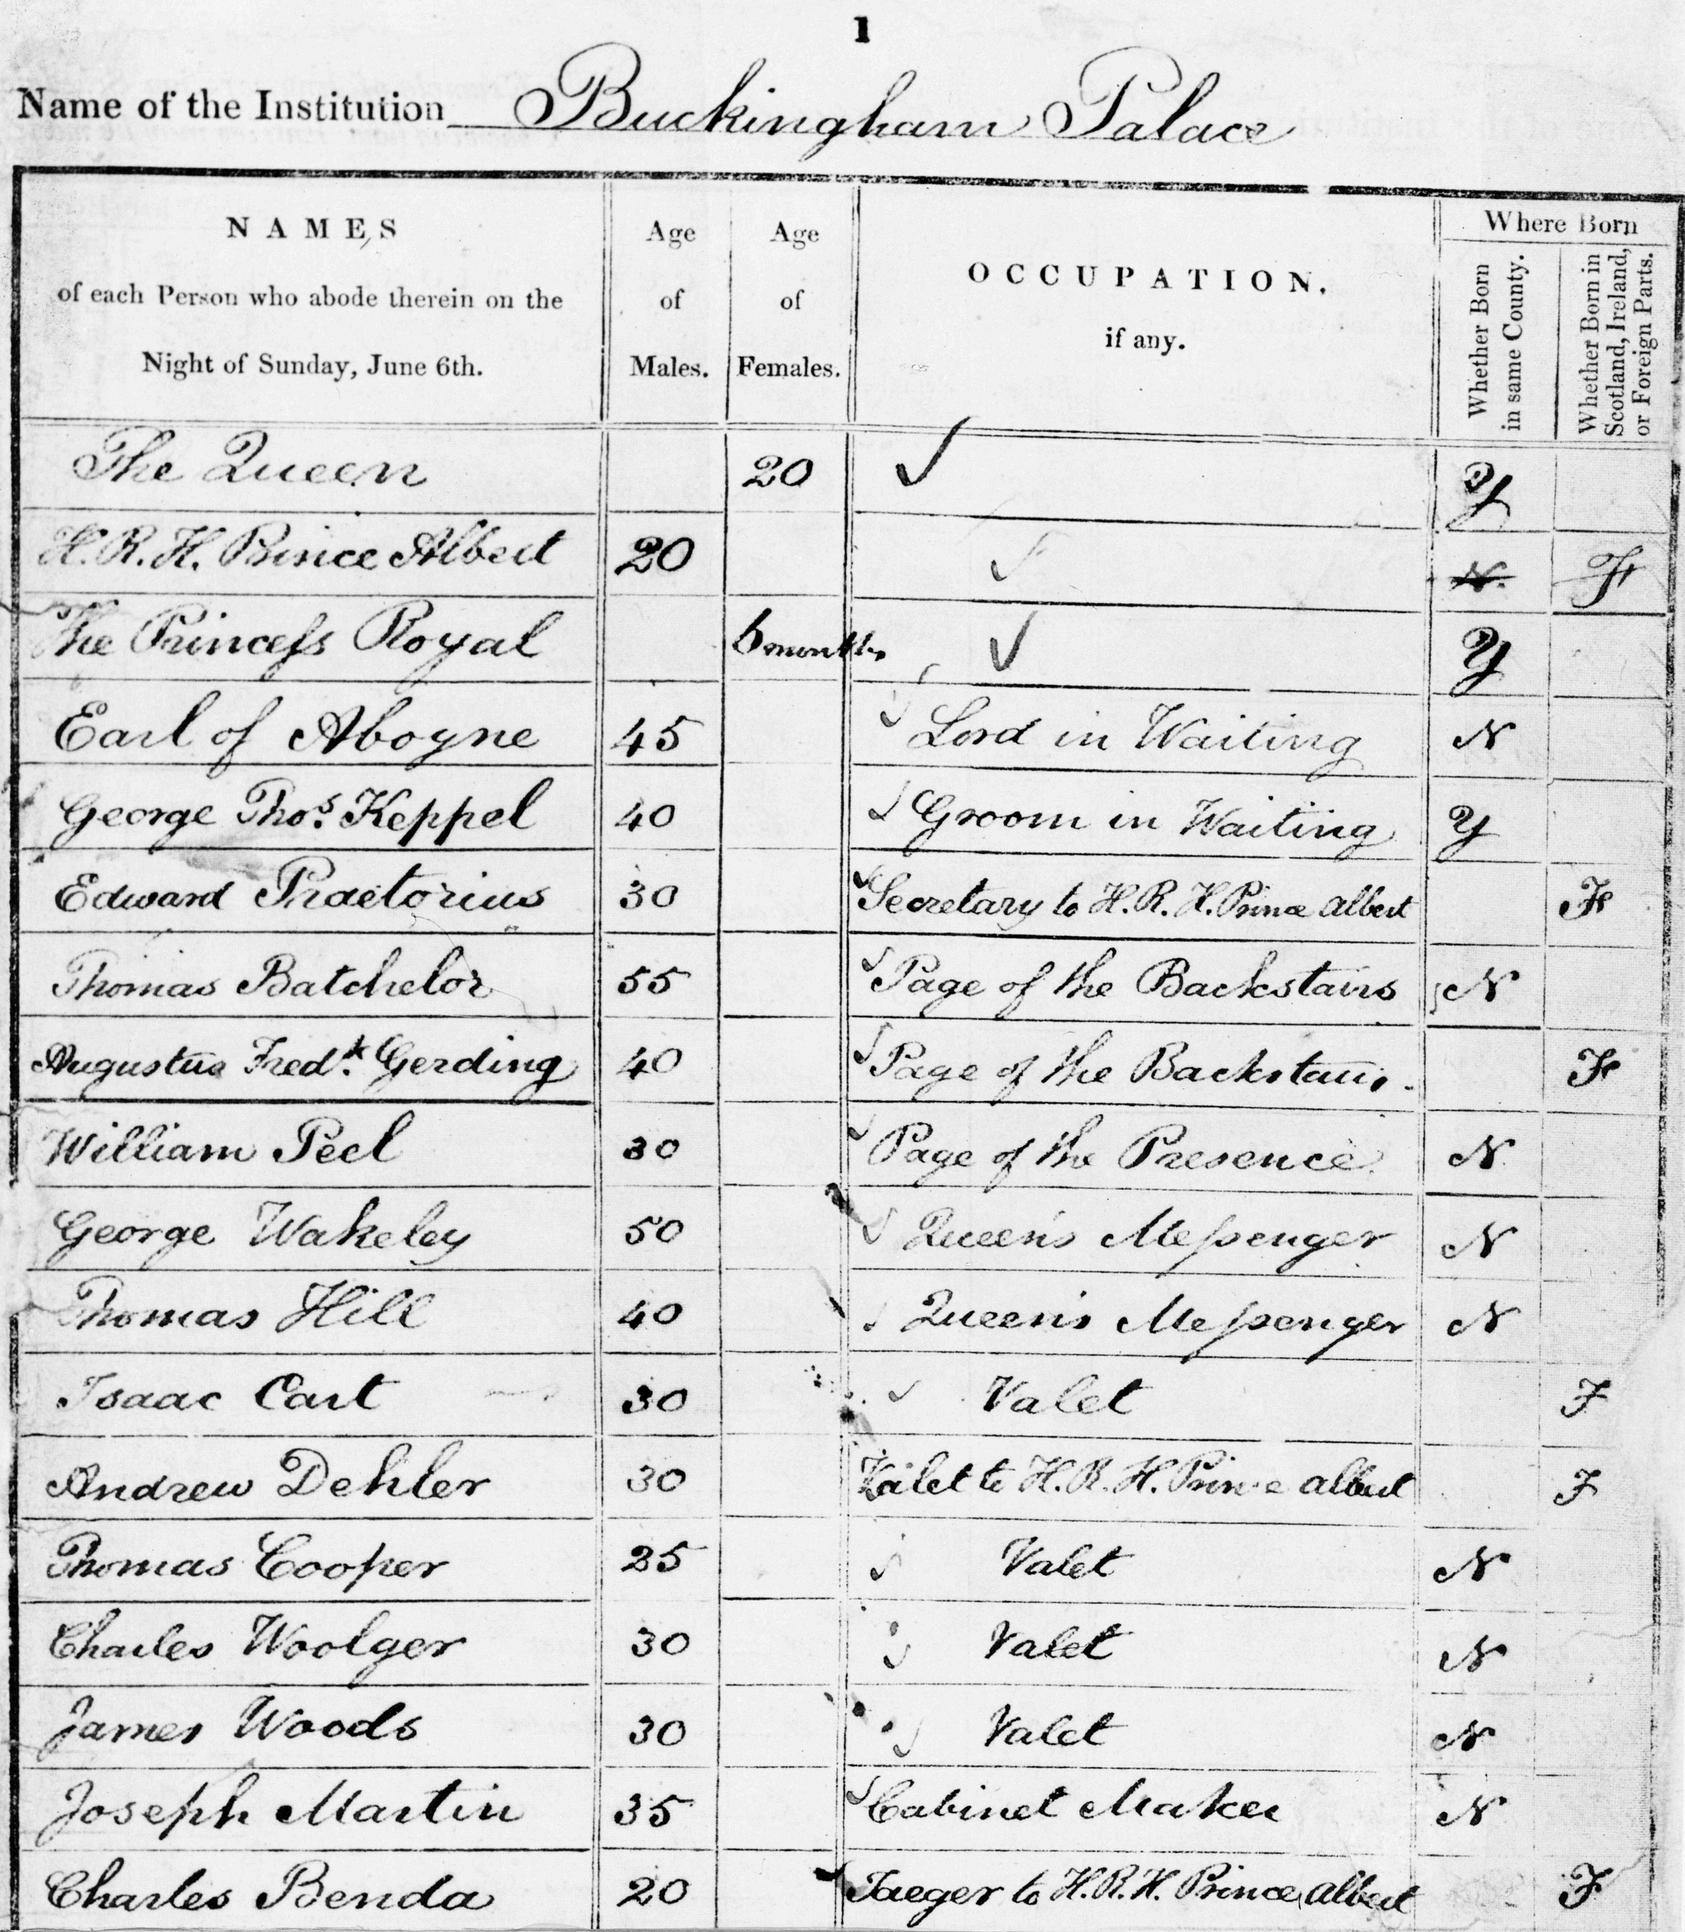 1
Name of the Institution Buckingham Palace
NAMES of each Person who abode therein on the Night of Sunday, June 6th.
Age of Males.
Age of Females.
OCCUPATION, if any.
Where Born
Whether Born in same County.
Whether Born in Scotland, Ireland, or Foreign Parts.
The Queen 20 Y
H.R.H. Prince Albert 20 N. F
The Princess Royal 6 months Y
Earl of Aboyne 45 Lord in Waiting N
George Thos. Keppel 40 Groom in Waiting Y
Edward Praetorius 30 Secretary to H.R.H. Prince Albert F
Thomas Batchelor 55 Page of the Backstairs N
Augustus Fredk. Gerding 40 Page of the Backstairs F
William Peel 30 Page of the Presence N
George Wakeley 50 Queen's Messenger N
Thomas Hill 40 Queen's Messenger N
Isaac Cart 30 Valet F
Andrew Dehler 30 Valet to H.R.H. Prince Albert F
Thomas Cooper 25 Valet N
Charles Woolger 30 Valet N
James Woods 30 Valet N
Joseph Martin 35 Cabinet Maker N
Charles Benda 20 Jaeger to H.R.H. Prince Albert F